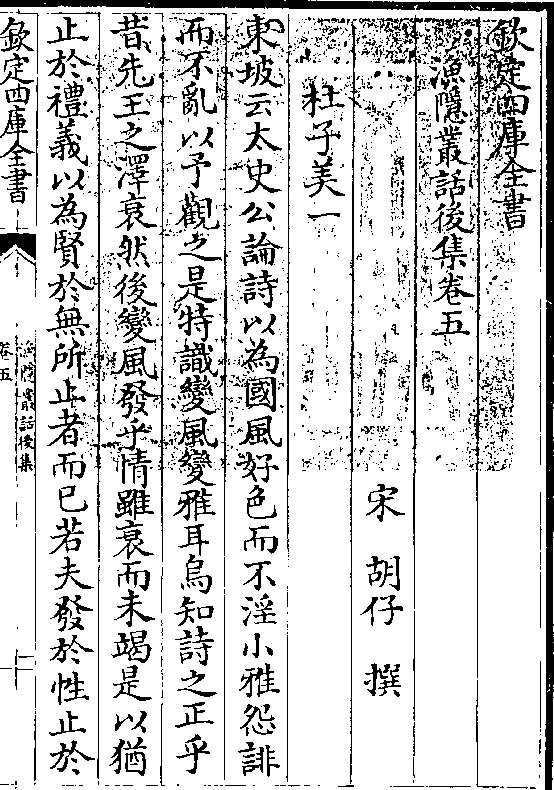 欽定四庫全書
漁隱叢話後集卷五
宋 胡仔 撰
杜子美一
東坡云太史公論詩以為國風好色而不淫小雅怨誹
而不亂以予觀之是特識變風變雅耳烏知詩之正乎
昔先王之澤衰然後變風發乎情雖衰而未竭是以猶
止於禮義以為賢於無所止者而已若夫發於性止於
欽定四庫全書
漁隱叢話後集
卷五
一